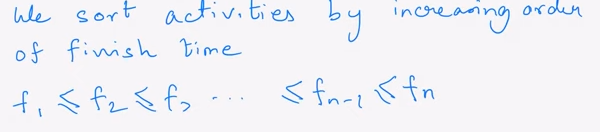 We sort activities by increasing order
of finish time
f₁ ≤ f₂ ≤ f₃ ... ≤ fₙ₋₁ ≤ fₙ